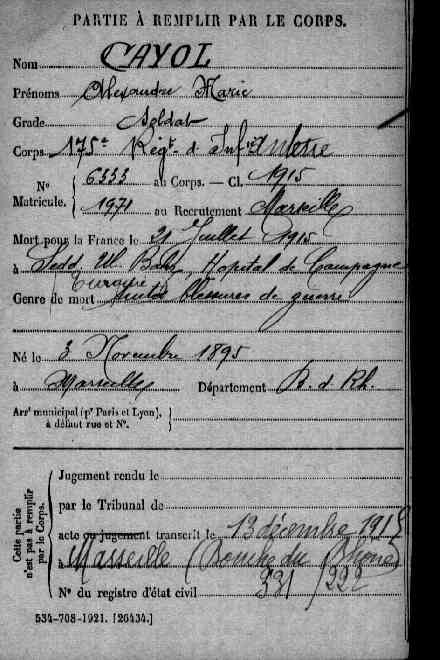 PARTIE À REMPLIR PAR LE CORPS.
Nom CAYOL
Prénoms Alexandre Marie
Grade Soldat
Corps 175e Régt d'Infrie
No Matricule. 6333 au Corps. — Cl. 1915
1971 au Recrutement Marseille
Mort pour la France le 21 Juillet 1915
à Sedd Ul Bahr Hopital de Campagne
Turquie
Genre de mort suites blessures de guerre
Né le 3 Novembre 1895
à Marseille Département B. d. Rh.
Arrt municipal (pr Paris et Lyon), à défaut rue et No.
Cette partie n'est pas à remplir par le Corps.
Jugement rendu le
par le Tribunal de
acte ou jugement transcrit le 13 décembre 1915
à Marseille (Bouches du Rhône)
No du registre d'état civil 331/222
534-708-1921. [26434.]